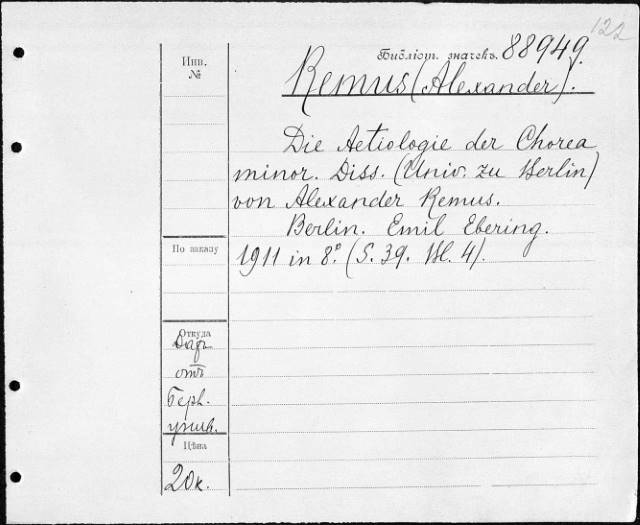 122
Библіот. значекъ. 88949.
Инв.
№
Remus (Alexander).
Die Aetiologie der Chorea
minor. Diss. (Univ. zu Berlin)
von Alexander Remus.
Berlin. Emil Ebering.
По заказу
1911 in 8º. (S. 39. Bl. 4).
Откуда
Даръ
отъ
Берл.
унив.
Цѣна
20к.